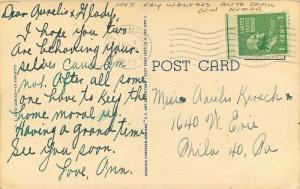 Dear Aurelie & Glady,
I hope you two
are behaving your-
selves cause Am
not. After all some
one have to keep the
home moral up.
Having a grand time
See you soon.
Love, Ann.
1945 RAY WALTERS AUTO COMIC
COW HUMOR
UNITED
STATES
POSTAGE
1 CENT 1
POST CARD
Miss Aurelie Kirsch
1640 W. Erie
Phila 40, Pa